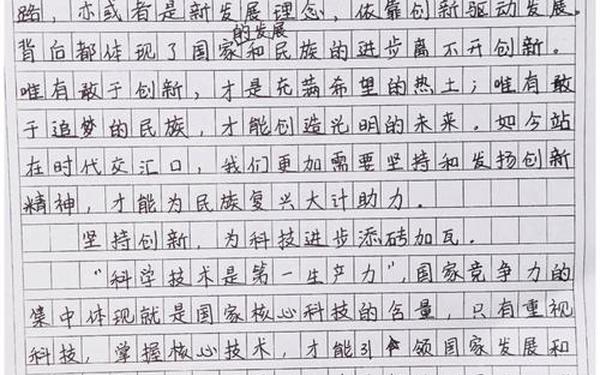 路，亦或者是新发展理念，依靠创新驱动发展。
背后都体现了国家的发展和民族的进步离不开创新。
唯有敢于创新，才是充满希望的热土；唯有敢
于追梦的民族，才能创造光明的未来。如今站
在时代交汇口，我们更加需要坚持和发扬创新
精神，才能为民族复兴大计助力。
坚持创新，为科技进步添砖加瓦。
“科学技术是第一生产力”，国家竞争力的
集中体现就是国家核心科技的含量，只有重视
科技，掌握核心技术，才能引领国家发展和